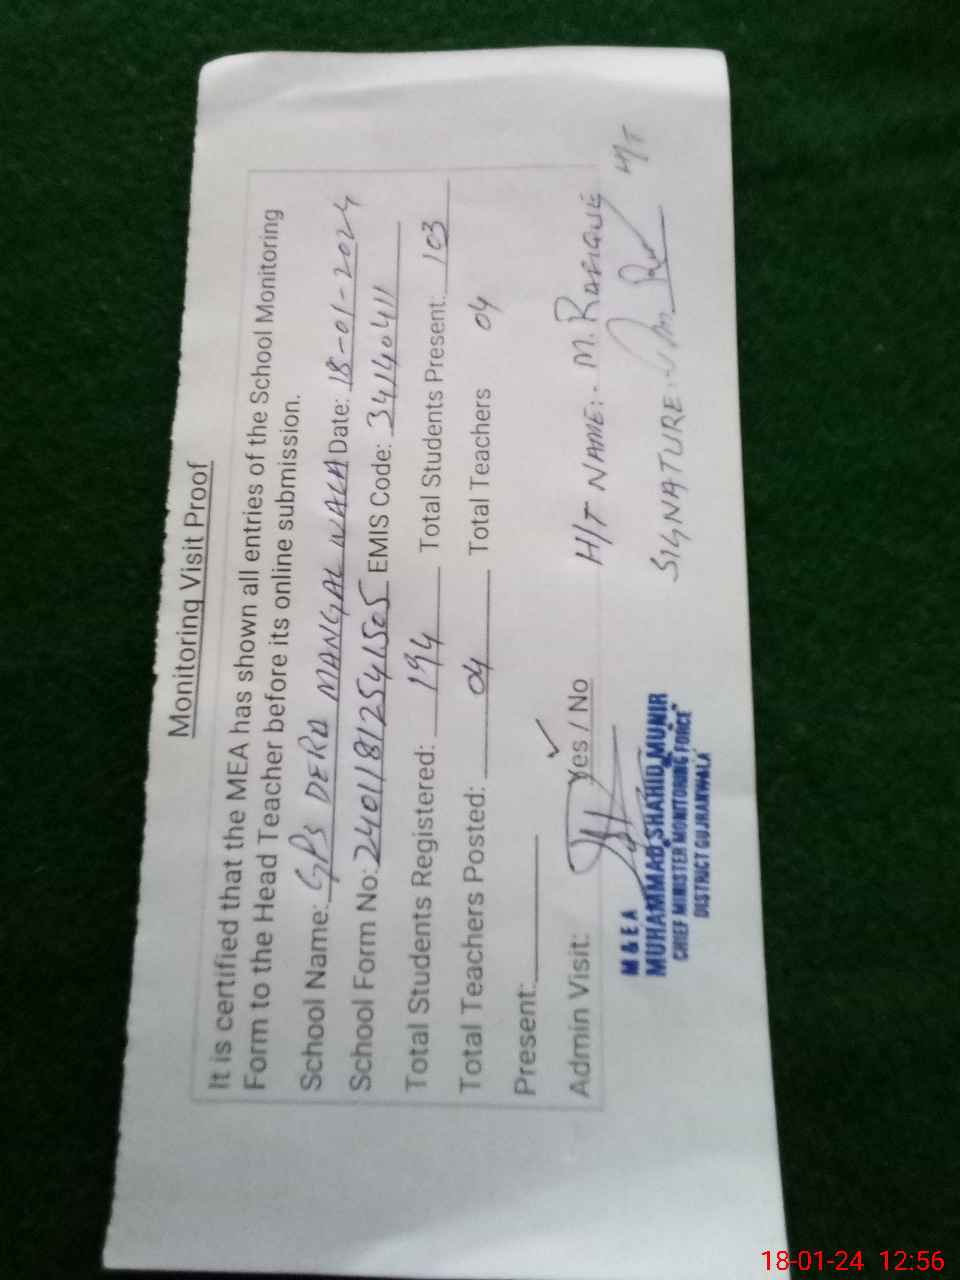 Monitoring Visit Proof
It is certified that the MEA has shown all entries of the School Monitoring
Form to the Head Teacher before its online submission.
School Name: GPS DERA MANGAL WALA Date: 18-01-2024
School Form No: 24011812541505 EMIS Code: 34140411
Total Students Registered: 194 Total Students Present: 103
Total Teachers Posted: 04 Total Teachers 04
Present:
Admin Visit: Yes / No ✓
H/T NAME:- M. RAFIQUE
SIGNATURE:- H/T
M & E A
MUHAMMAD SHAHID MUNIR
CHIEF MINISTER MONITORING FORCE
DISTRICT GUJRANWALA
18-01-24 12:56